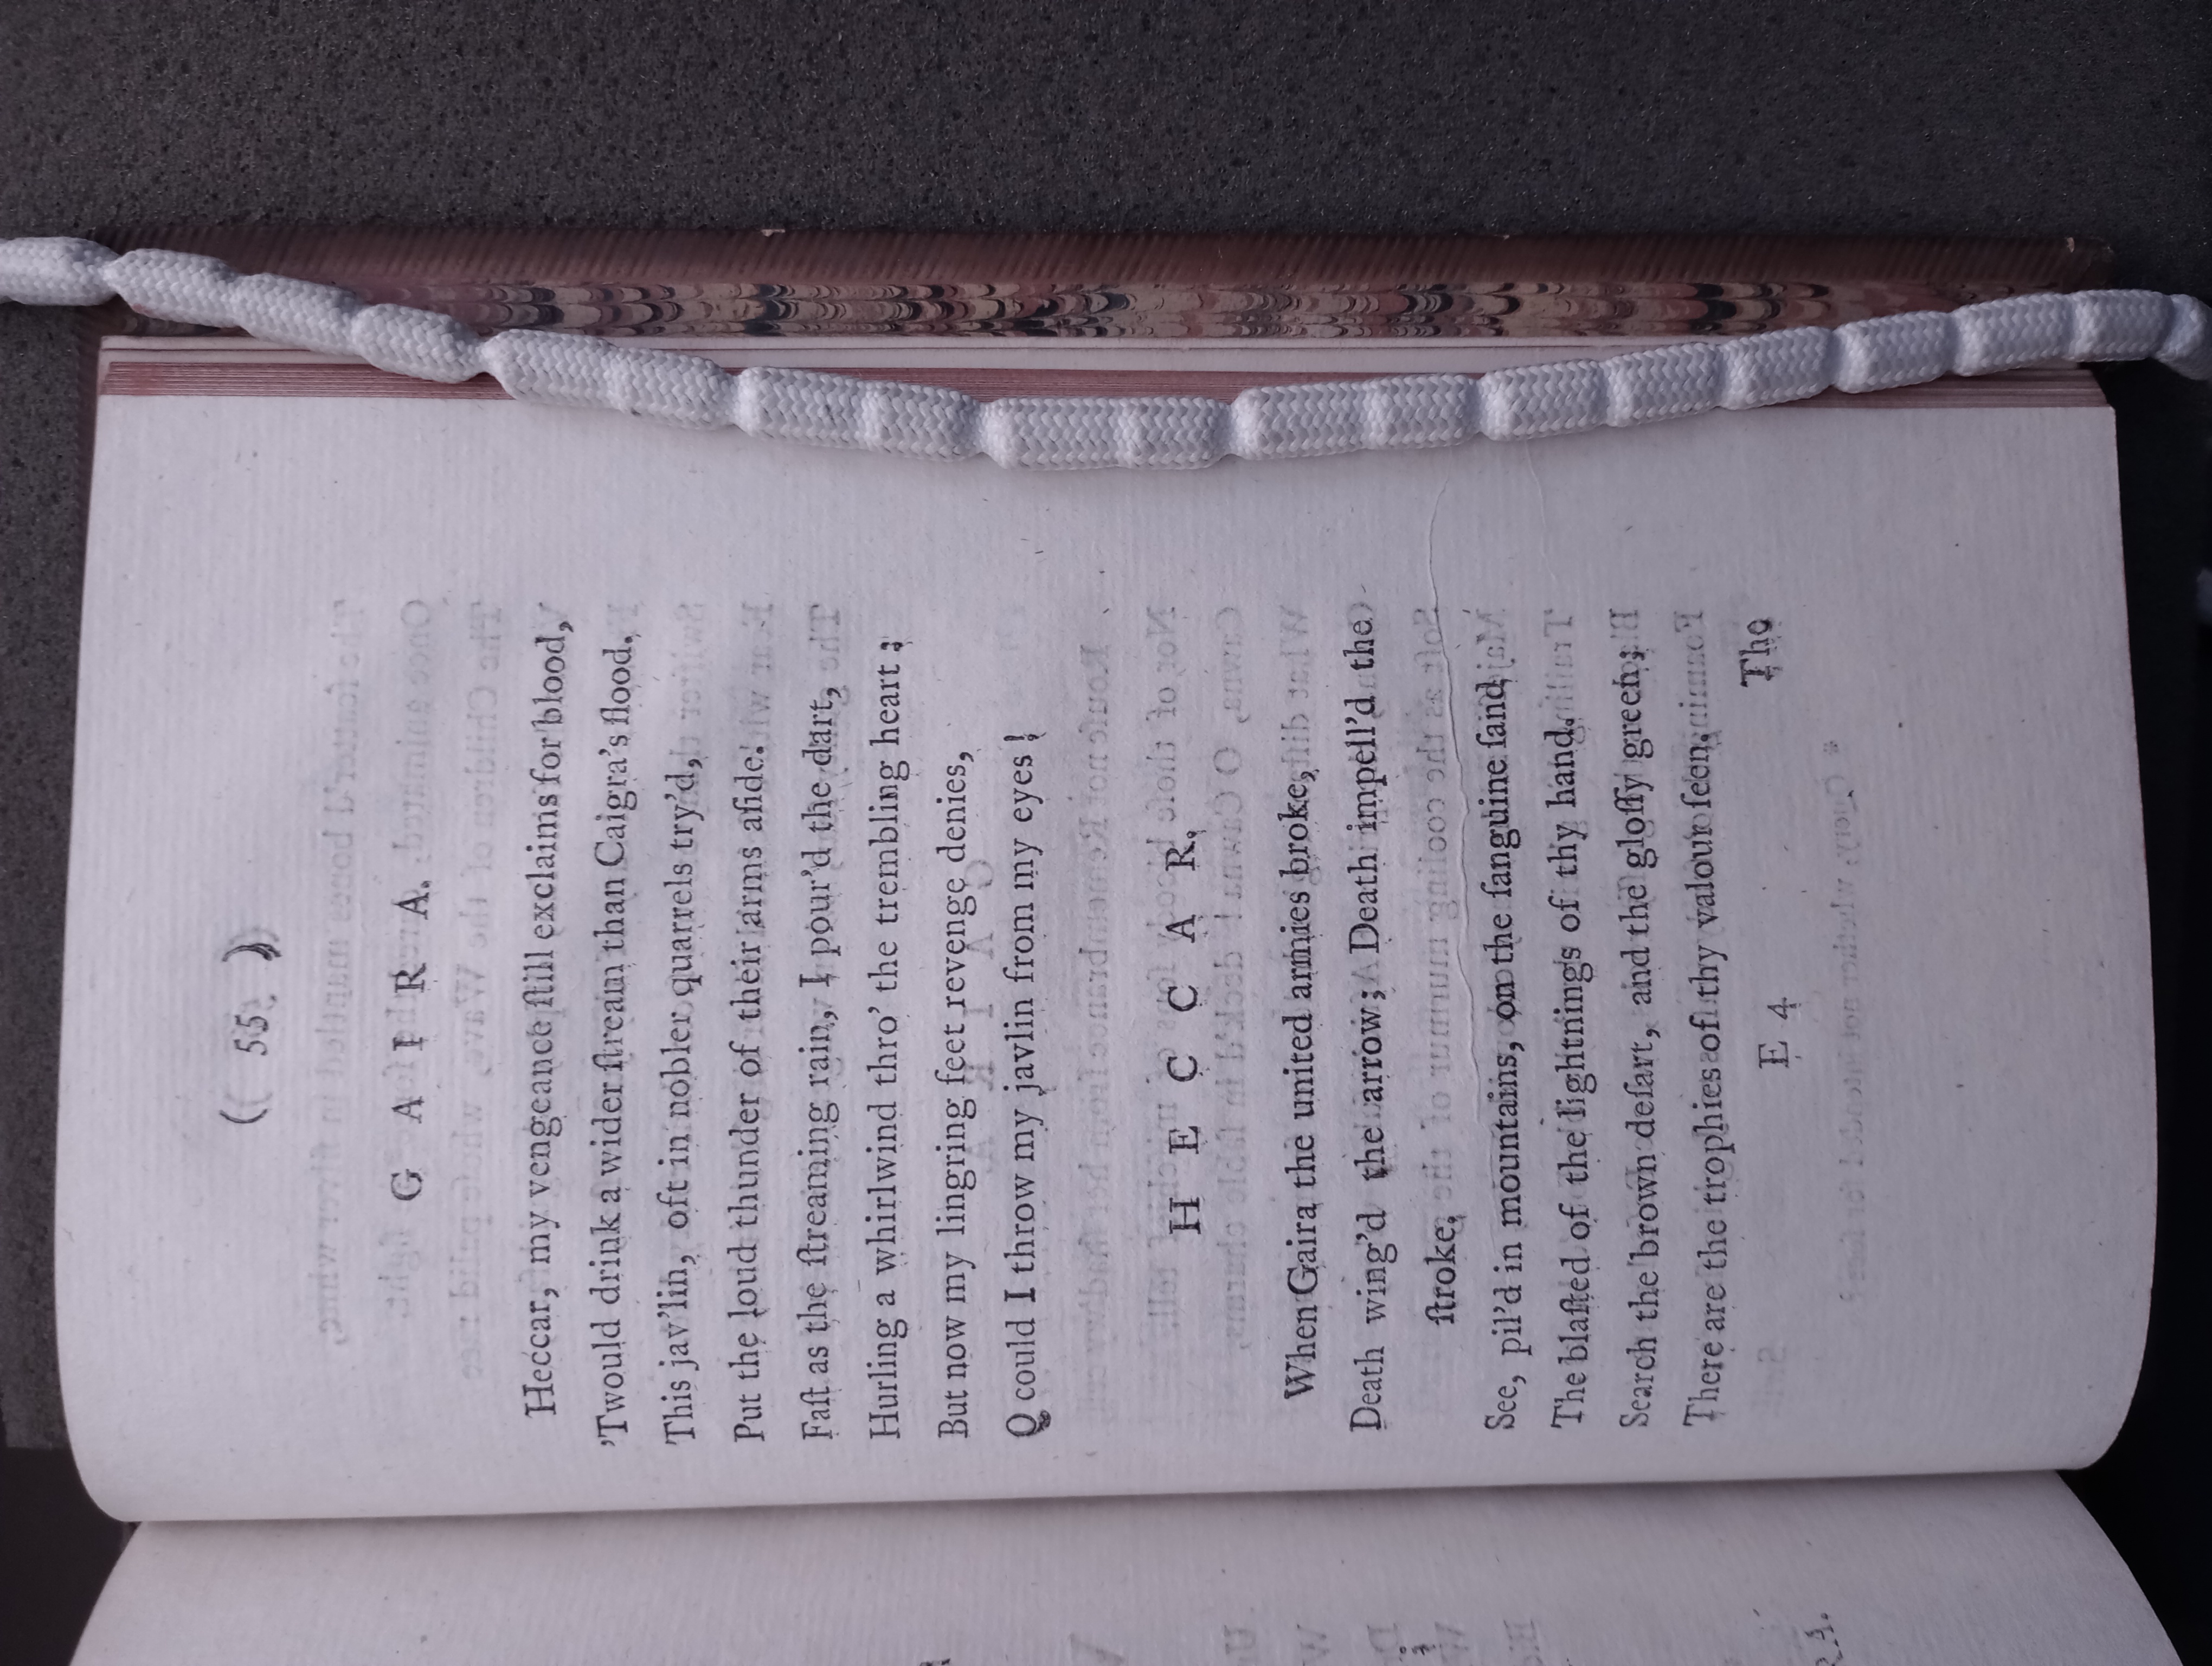 ( 55 )
G A I R A.
Heccar, my vengeance ſtill exclaims for blood,
'Twould drink a wider ſtream than Caigra's flood.
This jav'lin, oft in nobler quarrels try'd,
Put the loud thunder of their arms aſide.
Faſt as the ſtreaming rain, I pour'd the dart,
Hurling a whirlwind thro' the trembling heart;
But now my lingring feet revenge denies,
O could I throw my javlin from my eyes!
H E C C A R.
When Gaira the united armies broke,
Death wing'd the arrow; Death impell'd the
ſtroke.
See, pil'd in mountains, on the ſanguine ſand
The blaſted of the lightnings of thy hand.
Search the brown deſart, and the gloſſy green;
There are the trophies of thy valour ſeen.
E 4
The
RA.